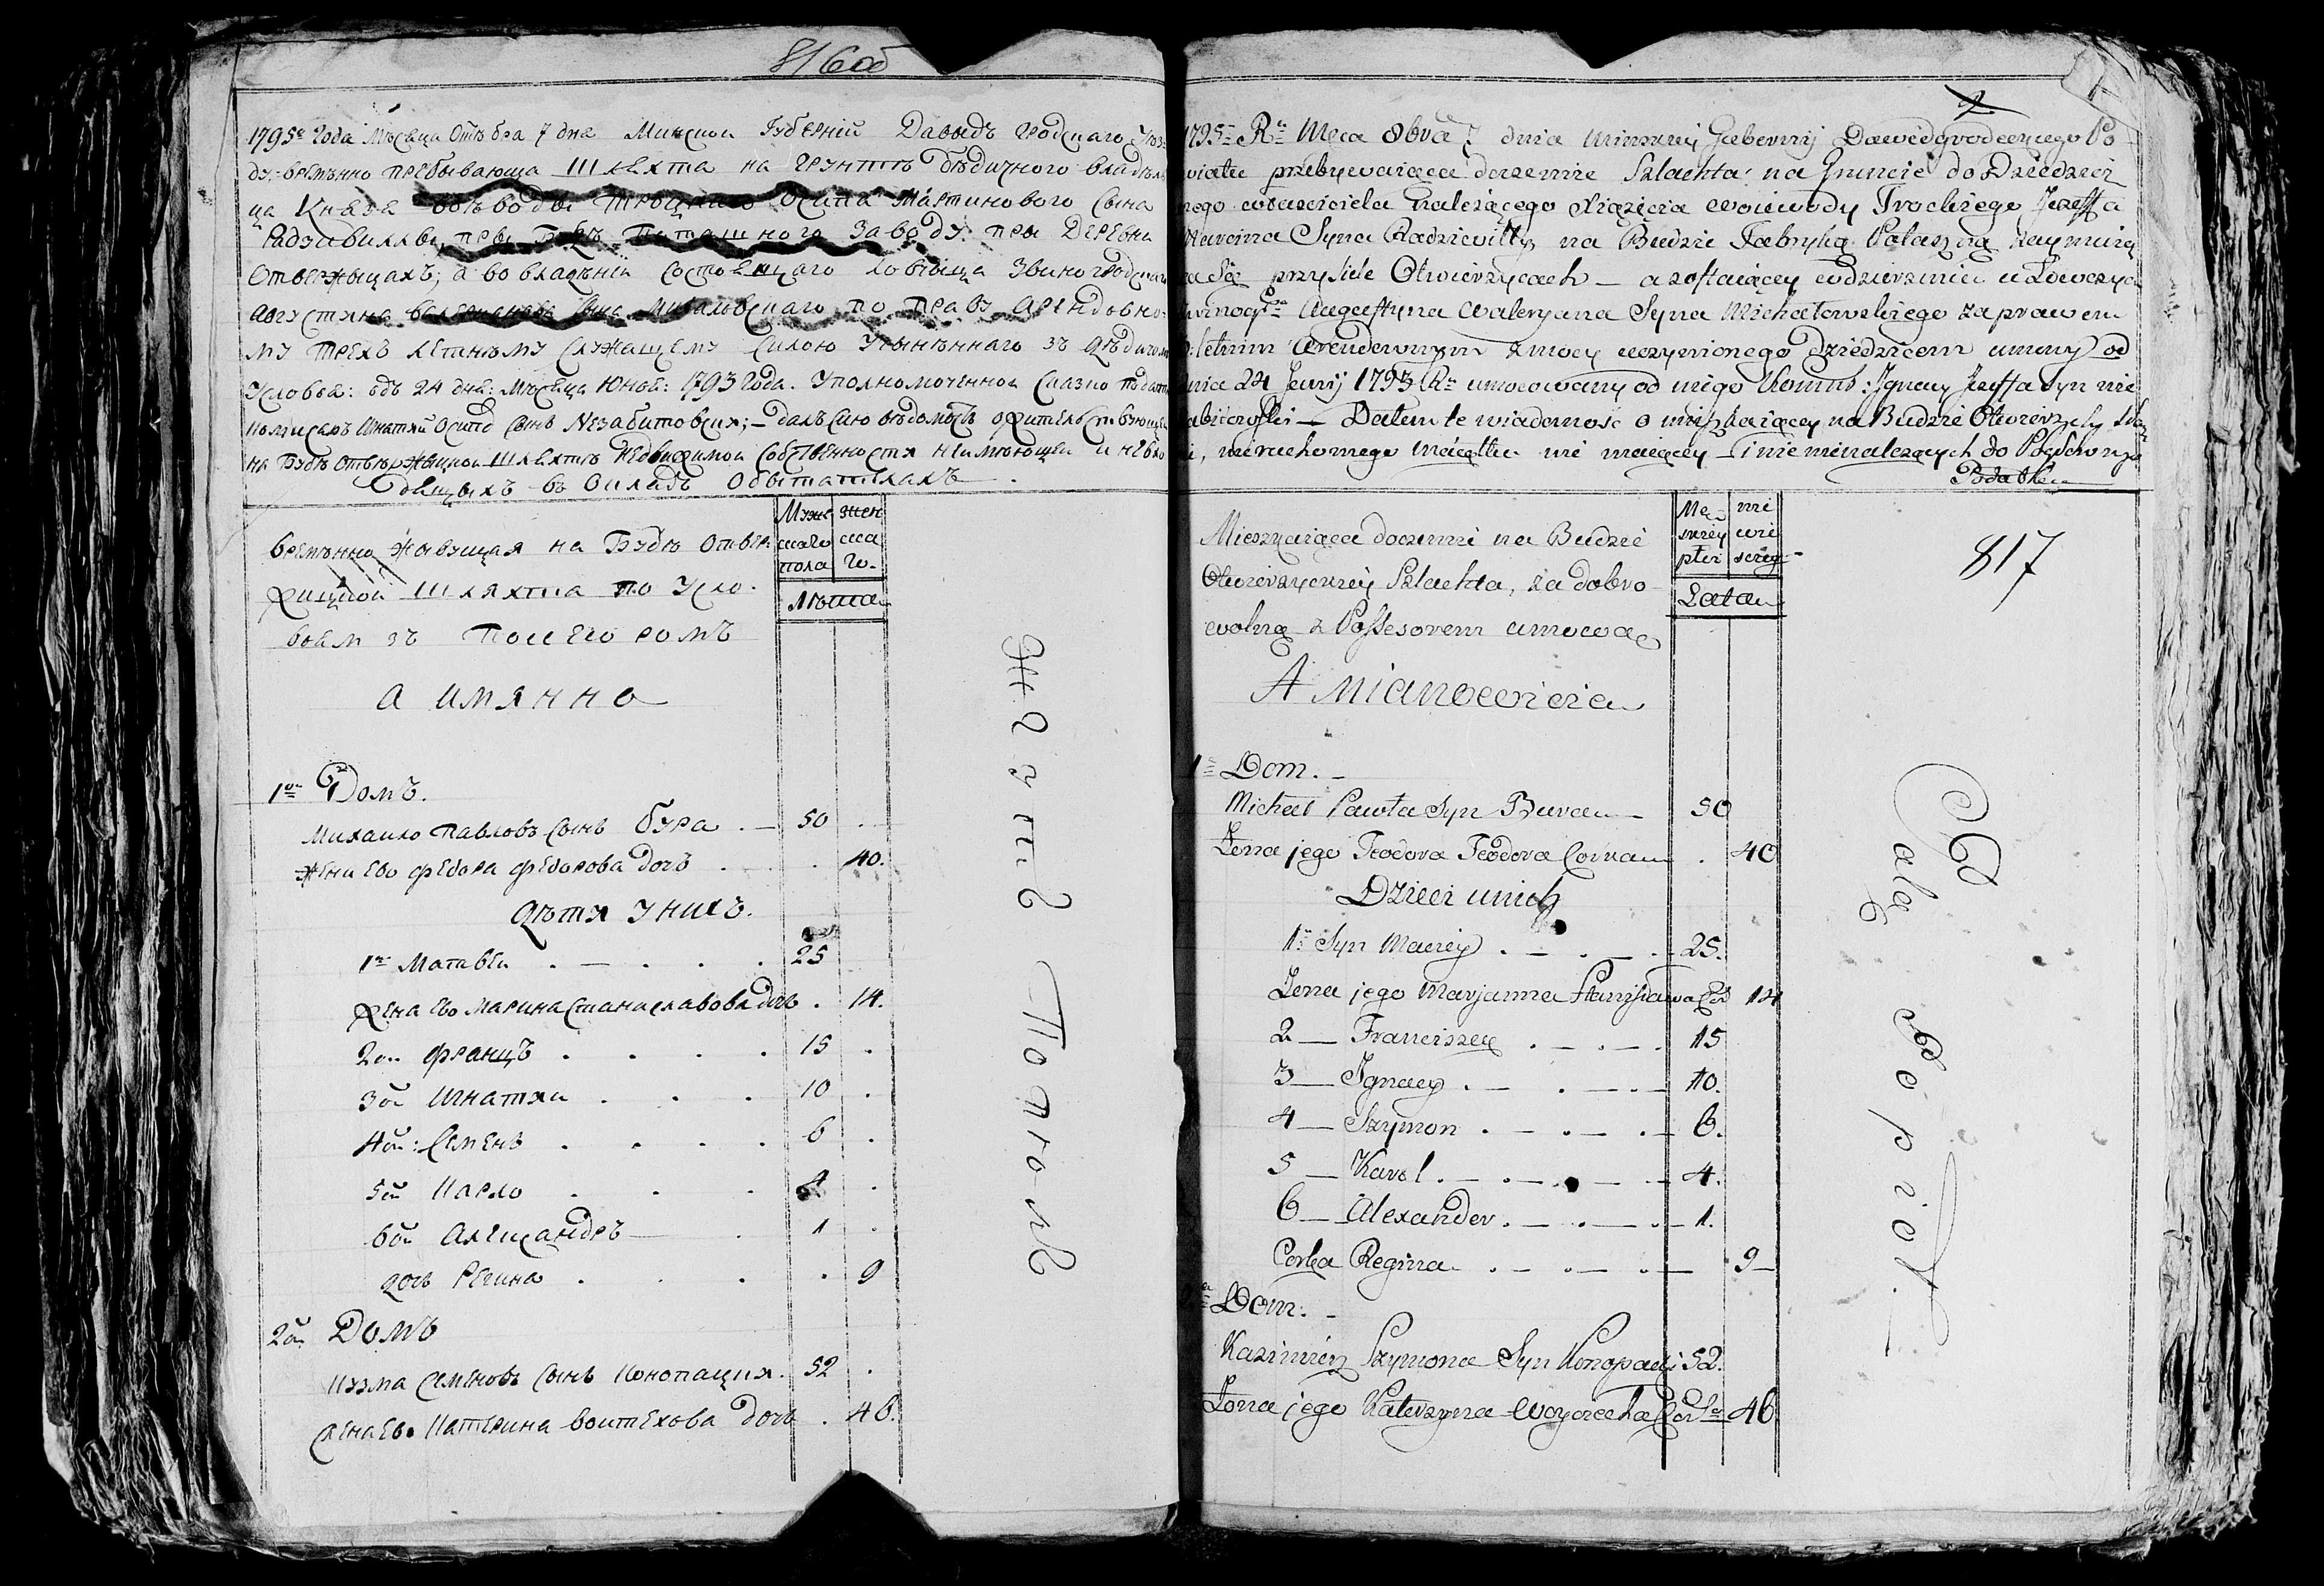 816об
1795го Года Мѣсяца Октъбра 7 дня Минской Губерніи Давыдъ Гродскаго Уѣз-
ду временно пребывающа Шляхта на грунтѣ Дѣдичного владѣль
ца Князя Воѣводы Троцкаго Осипа Мартинового Сына
Радзивилла, при Будѣ Поташного Заводу при Деревни
Отвержыцахъ, а во владѣніи состоящаго Ловчыца Звиногродскаго
Августина Валерианова Сына Михаловскаго по праву Арендовно-
му трехъ летнему служащему силою учыненнаго зъ Дѣдичомъ
Условья: одъ 24 дня: Мѣсяца Юноя: 1793 Года. Уполномоченной
Игнатий Осипа Сынъ Незабитовски; — далъ сию вѣдомость о жителствующей
на Будѣ Отвержыцкой Шляхтѣ недвижимой собственности неимѣющей и невхо
дящыхъ въ Окладъ Обытателахъ
временно жывущая на Будѣ Отвер-
жицкой Шляхта по Усло-
воам зъ Посесоромъ
а имянно
Мужескаго пола
женскаго.
Лѣта
1ой Домъ.
Михаило Павловъ Сынъ Бура . — 50 .
жена ево Федора Федорова дочь . . 40.
Дѣти у нихъ.
1й Матвей . — . . . 25
жена ево Марина Станиславова дочь . 14.
2ой Францъ . . . . 15 .
3ой Игнатяи . . . 10 .
4ой: Семенъ . . . . 6 .
5ой Карло . . . 4 .
6ой Александръ . 1 .
дочь Регина . . . . 9
2ой Домъ
Кузма Семеновъ Сынъ Конопацки . 52 .
жена ево Катерина Войтехова дочь . 46.
1795 Ru Mca 8bra 7 dnia Minskiey Gubernij Dawidgrodeckiego Po-
wiatu przebywaiąca doczesnie Szlachta na Gruncie do Dziedzicz
nego własciciela Należącego Xiążęcia Woiewody Trockiego Jozeffa
Marcina Syna Radziwiłły, na Budzie Fabryką Potaszną zaymuią
ca Się przy siele Otwierzycach — a zostaiącey w dzierzeniu u Łowczyca
Augustyna Waleryana Syna Michałowskiego za prawem
letnim Arendownym z mocy uczynionego z Dziedzicem umowy od
dnia 24 Junij 1793 Ru umocowany od niego Komis: Ignacy Jozeffa Syn Nie
zabitowski — Datem te wiadomosć o mięszkaiącey na Budzie Otwierzyckiey Szla
nieruchomego maiątku nie maiącey — i nie nalezących do Płacenia
Podatku
Mieszkaiąca doczesnie na Budzie
Otwierzyckiey Szlachta, za dobro-
wolną z Possesorem umową
A Mianowicie
Męzkiey płci
nie wie sciey
Lata
817
1 Dom. —
Michał Pawła Syn Bura — 50
Zona jego Teodora Teodora Corka . 40
Dzieci u nich
1 Syn Maciey . — . — . 25.
Zona jego Marjanna Stanisława Cor 14
2 — Franciszek . — . — . 15
3 — Ignacy . — . — 10.
4 — Szymon . — . — . 6.
5 — Karol . — . — 4.
6 — Alexander . — . — 1.
Corka Regina . — . — . — 9 —
2 Dom. —
Kazimierz Szymona Syn Konopacki 52.
Zona jego Katerzyna Woyciecha Corka 46